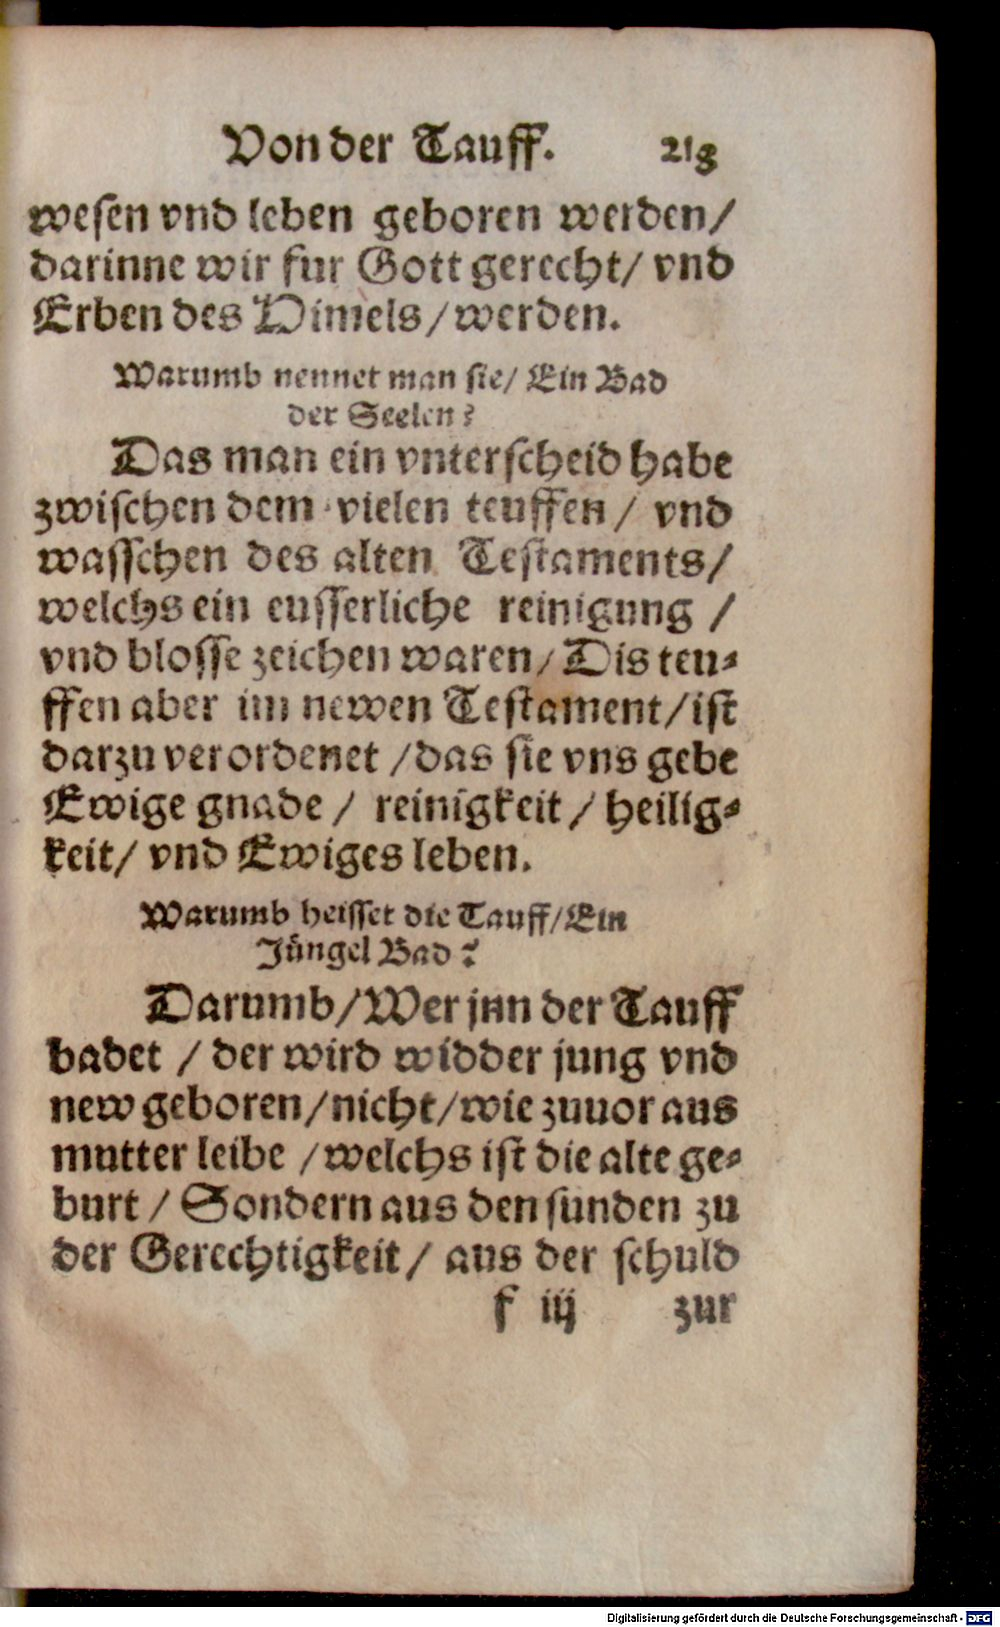 Von der Tauff. 218
wesen vnd leben geboren werden/
darinne wir fur Gott gerecht/ vnd
Erben des Himels/werden.
Warumb nennet man sie/ Ein Bad
der Seelen?
Das man ein vnterscheid habe
zwischen dem vielen teuffen/ vnd
wasschen des alten Testaments/
welchs ein eusserliche reinigung /
vnd blosse zeichen waren/Dis teu⸗
ffen aber im newen Testament/ist
darzu verordenet /das sie vns gebe
Ewige gnade / reinigkeit / heilig⸗
keit/ vnd Ewiges leben.
Warumb heisset die Tauff/Ein
Jüngel Bad?
Darumb/Wer jnn der Tauff
badet / der wird widder jung vnd
new geboren/nicht/wie zuuor aus
mutter leibe /welchs ist die alte ge⸗
burt / Sondern aus den sunden zu
der Gerechtigkeit/ aus der schuld
f iij zur
Digitalisierung gefördert durch die Deutsche Forschungsgemeinschaft - DFG